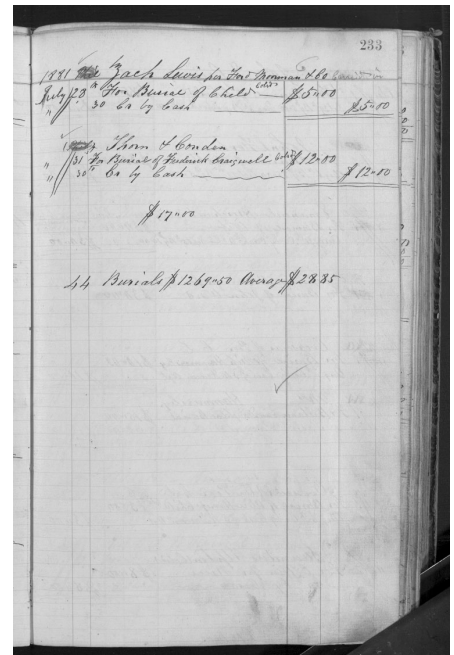 233
1881 Zach Lewis per Ford Morman & Co
July 20 For Burial of Child Cold $5"00
" 30 Cr by Cash $5"00
Thorn & Conden
" 31 For Burial of Fredrick Craigwell Cold $12"00
" 30 Cr by Cash $12"00
$17"00
44 Burials $1269"50 Average $28.85